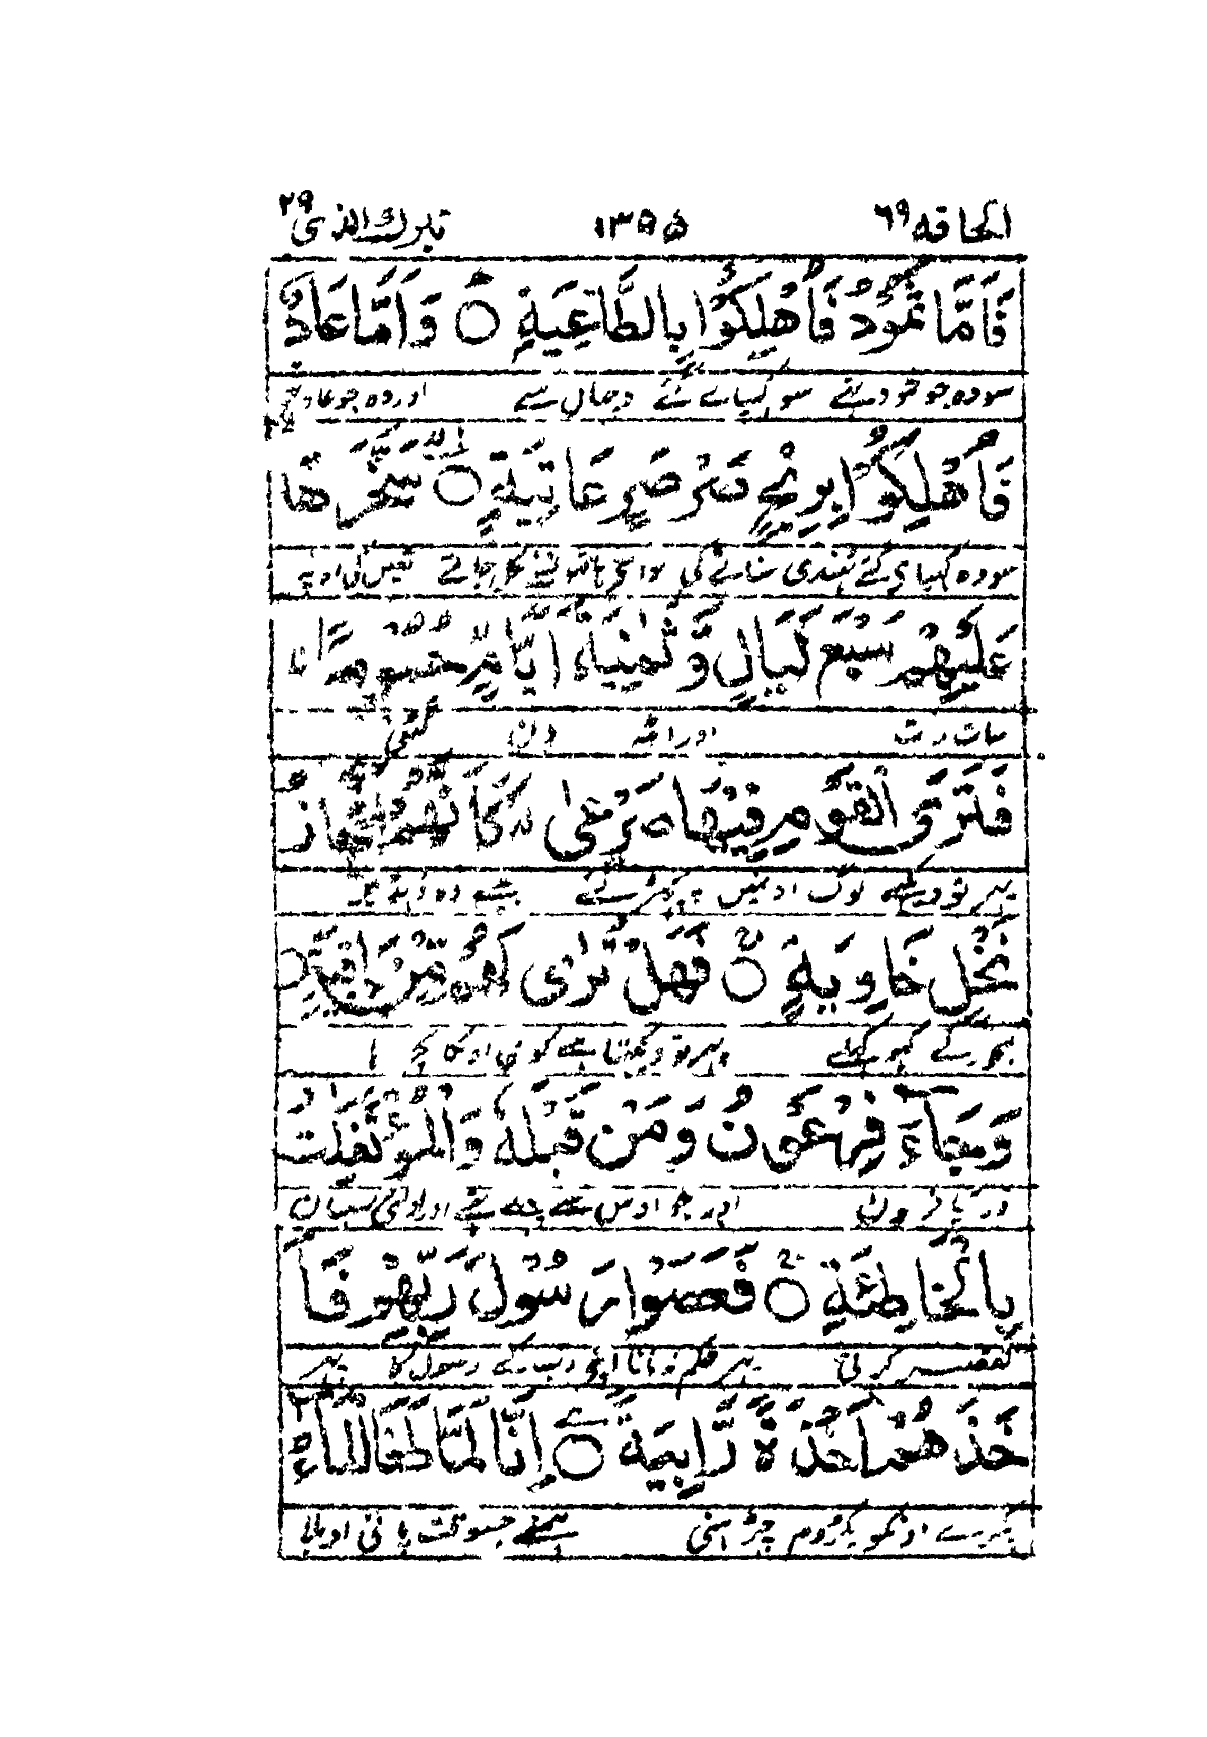 الحاقه ٦٩ ١٣٥٥ تبرك الذى ٢٩
فَاَمَّا ثَمُوْدُ فَاُهْلِكُوْا بِالطَّاغِيَةِ ۝ وَاَمَّا عَادٌ
سو وہ جو ثمود تھے سو کھپائے گئے اوچھال سے اور وہ جو عاد تھے
فَاُهْلِكُوْا بِرِيْحٍ صَرْصَرٍ عَاتِيَةٍ ۝ سَخَّرَهَا
سو وہ کھپائے گئے ٹھنڈی سناٹے کی
عَلَيْهِمْ سَبْعَ لَيَالٍ وَّثَمٰنِيَةَ اَيَّامٍ حُسُوْمًا
سات رات اور آٹھ دن
فَتَرَى الْقَوْمَ فِيْهَا صَرْعٰى كَاَنَّهُمْ اَعْجَازُ
پھر تو دیکھے لوگ اونمیں پچھڑ گئے جیسے وہ
نَخْلٍ خَاوِيَةٍ ۝ فَهَلْ تَرٰى لَهُمْ مِّنْۢ بَاقِيَةٍ ۝
کھجور کے کھوکھلے پھر تو دیکھتا ہے کوئی اونکا بچ
وَجَآءَ فِرْعَوْنُ وَمَنْ قَبْلَهٗ وَالْمُؤْتَفِكٰتُ
اور آیا فرعون اور جو اوس سے پہلے تھے اور اولٹی بستیاں
بِالْخَاطِئَةِ ۝ فَعَصَوْا رَسُوْلَ رَبِّهِمْ فَاَ
تقصیر کرتی پھر حکم نہ مانا اپنے رب کے رسول کا پھر
خَذَهُمْ اَخْذَةً رَّابِيَةً ۝ اِنَّا لَمَّا طَغَا الْمَآءُ
پکڑ اونکو ہمنے جسوقت پانی